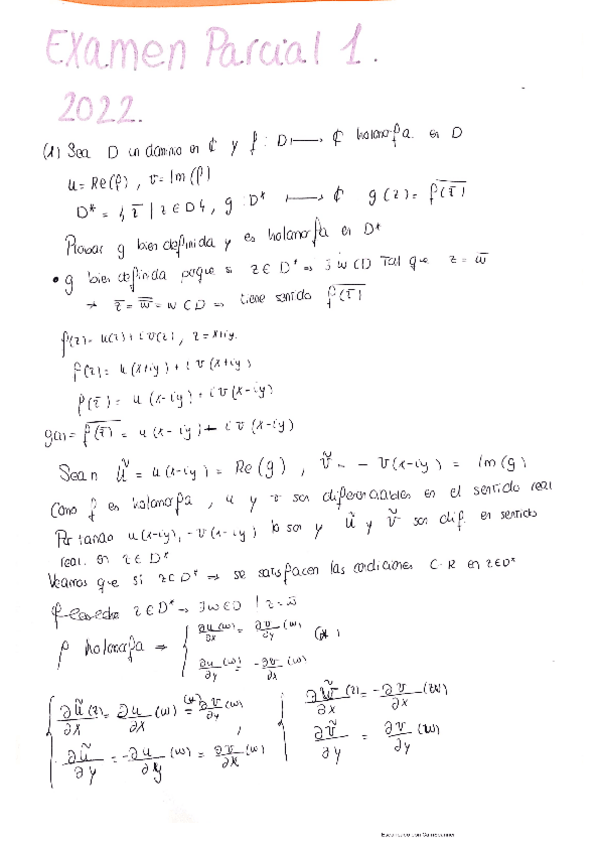 Examen Parcial 1.
2022.
(1) Sea D un dominio en ℂ y f: D ⟼ ℂ holomorfa en D
u = Re(f), v = Im(f)
D* = { z̅ | z ∈ D }, g: D* ⟼ ℂ g(z) = \overline{f(z̅)}
Probar g bien definida y es holomorfa en D*
• g bien definida porque si z ∈ D* ⇒ ∃ w ∈ D Tal que z = w̅
→ z̅ = \overline{w̅} = w ∈ D ⇒ tiene sentido \overline{f(z̅)}
f(z) = u(z) + i v(z), z = x+iy.
f(z) = u(x+iy) + i v(x+iy)
f(z̅) = u(x-iy) + i v(x-iy)
g(z) = \overline{f(z̅)} = u(x-iy) - i v(x-iy)
Sean ũ = u(x-iy) = Re(g), ṽ = -v(x-iy) = Im(g)
Como f es holomorfa, u y v son diferenciables en el sentido real
Por tanto u(x-iy), -v(x-iy) lo son y ũ y ṽ son dif. en sentido
real en z ∈ D*
Veamos que si z ∈ D* ⇒ se satisfacen las condiciones C-R en z ∈ D*
z ∈ D* → ∃ w ∈ D | z = w̅
f holomorfa ⇒ { ∂u/∂x (w) = ∂v/∂y (w) (*)
∂u/∂y (w) = -∂v/∂x (w)
{ ∂ũ/∂x (z) = ∂u/∂x (w) (*)= ∂v/∂y (w) , { ∂ṽ/∂x (z) = -∂v/∂x (w)
∂ũ/∂y = -∂u/∂y (w) = ∂v/∂x (w) ∂ṽ/∂y = ∂v/∂y (w)
Escaneado con CamScanner